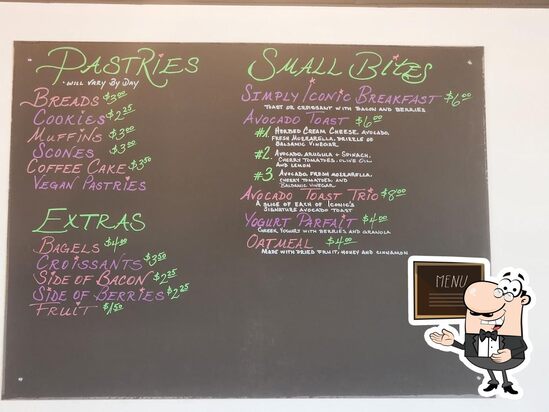 PASTRIES
- WILL VARY BY DAY
BREADS $3.00
COOKIES $2.25
MUFFINS $3.00
SCONES $3.00
COFFEE CAKE $3.50
VEGAN PASTRIES
EXTRAS
BAGELS $4.00
CROISSANTS $3.50
SIDE OF BACON $2.25
SIDE OF BERRIES $2.25
FRUIT $1.50
SMALL BITES
SIMPLY ICONIC BREAKFAST $6.00
TOAST OR CROISSANT WITH BACON AND BERRIES
AVOCADO TOAST $6.00
#1. HERBED CREAM CHEESE, AVOCADO,
FRESH MOZZARELLA, DRIZZLE OF
BALSAMIC VINEGAR
#2. AVOCADO, ARUGULA + SPINACH,
CHERRY TOMATOES, OLIVE OIL
AND LEMON
#3. AVOCADO, FRESH MOZZARELLA,
CHERRY TOMATOES, AND
BALSAMIC VINEGAR
AVOCADO TOAST TRIO $8.00
A SLICE OF EACH OF ICONIC'S
SIGNATURE AVOCADO TOAST
YOGURT PARFAIT $4.00
GREEK YOGURT WITH BERRIES AND GRANOLA
OATMEAL $4.00
MADE WITH DRIED FRUIT, HONEY AND CINNAMON
MENU